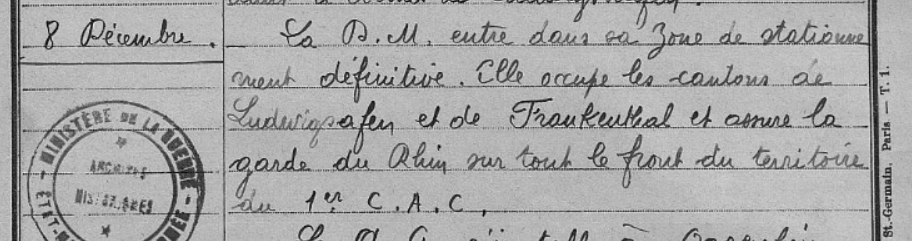 8 Décembre. La D.M. entre dans sa zone de stationne
ment définitive. Elle occupe les cantons de
Ludwigsafen et de Frankenthal et assure la
garde du Rhin sur tout le front du territoire
du 1er C.A.C.
MINISTÈRE DE LA GUERRE
ARCHIVES
HISTORIQUES
ÉTAT-M
St.-Germain. Paris. — T. 1.